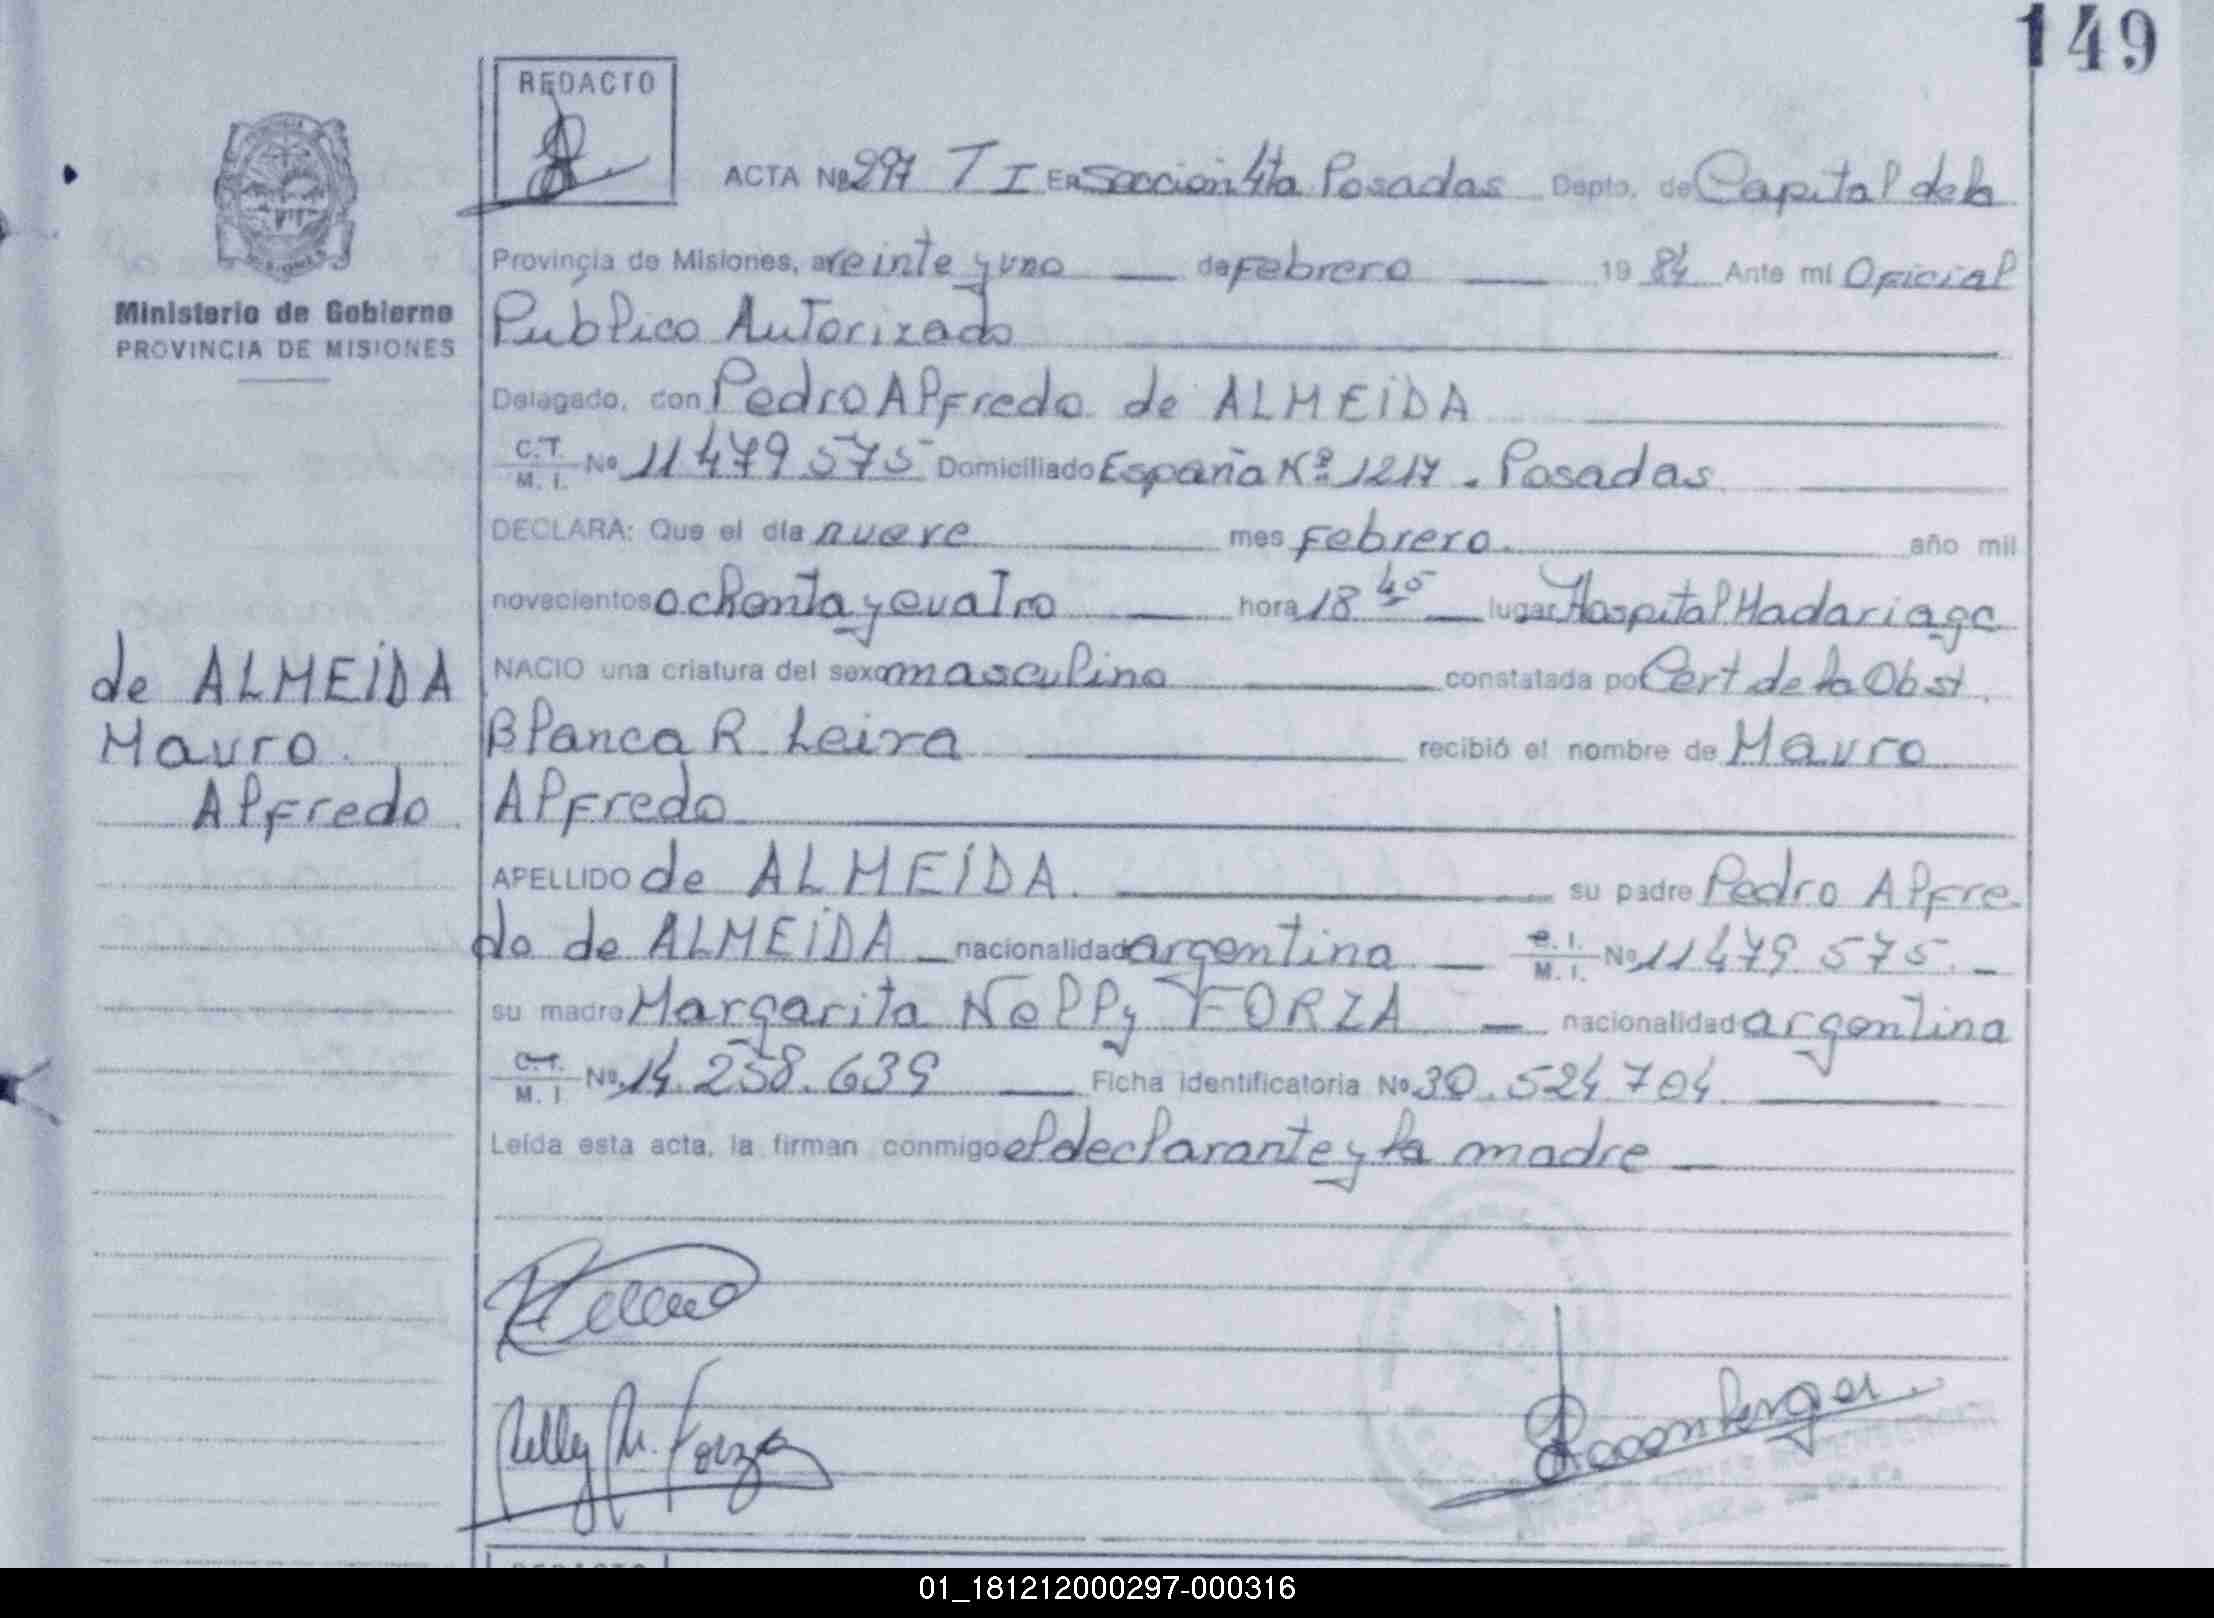 149
REDACTO
ACTA Nº 297 T I En Sección 4ta Posadas Depto. de Capital de la
Provincia de Misiones, a veinte y uno de Febrero 19 84 Ante mí Oficial
Ministerio de Gobierno
PROVINCIA DE MISIONES
Público Autorizado
Delegado, con Pedro Alfredo de ALMEIDA
C.T. M. I. Nº 11479575 Domiciliado España Nº 1217. Posadas
DECLARA: Que el día nueve mes Febrero año mil
novecientos ochenta y cuatro hora 18 45 lugar Hospital Madariaga
NACIO una criatura del sexo masculino constatada por Cert de la Obst.
Blanca R Leiva recibió el nombre de Mauro
Alfredo
de ALMEIDA
Mauro
Alfredo
APELLIDO de ALMEIDA. su padre Pedro Alfre-
do de ALMEIDA nacionalidad argentina e. I. M. I. Nº 11479575.
su madre Margarita Nelly FORZA nacionalidad argentina
C.T. M. I Nº 14.258.639 Ficha identificatoria Nº 30.524704
Leída esta acta, la firman conmigo el declarante y la madre
Nelly M. Forza
REDACTO
01_181212000297-000316